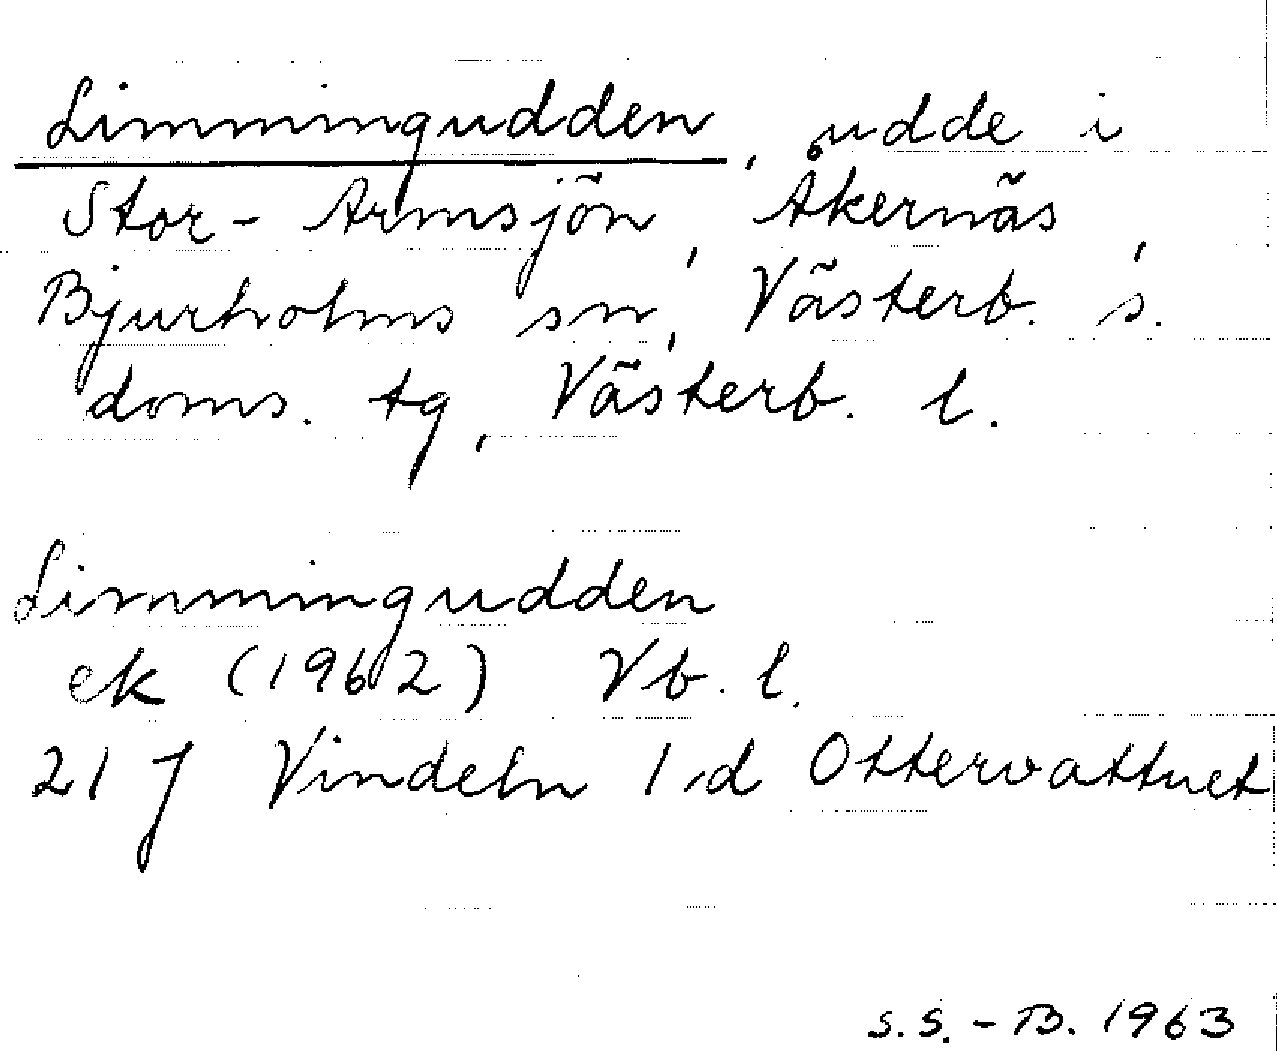 Limmingudden, udde i
Stor-Armsjön, Åkernäs,
Bjurholms sn, Västerb. s.
doms. tg, Västerb. l.
Limmingudden
ek (1962) Vb. l.
21 J Vindeln 1 d Ottervattnet
S.S.-B. 1963